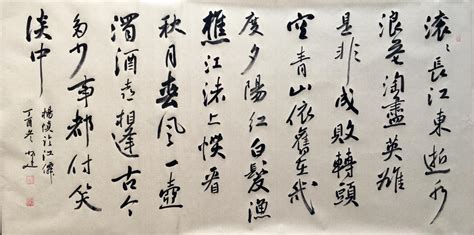 滚々長江東逝水
浪花淘盡英雄
是非成敗轉頭
空青山依舊在幾
度夕陽紅白髮漁
樵江渚上慣看
秋月春風一壺
濁酒喜相逢古今
多少事都付笑
談中
楊慎臨江僊
丁酉冬